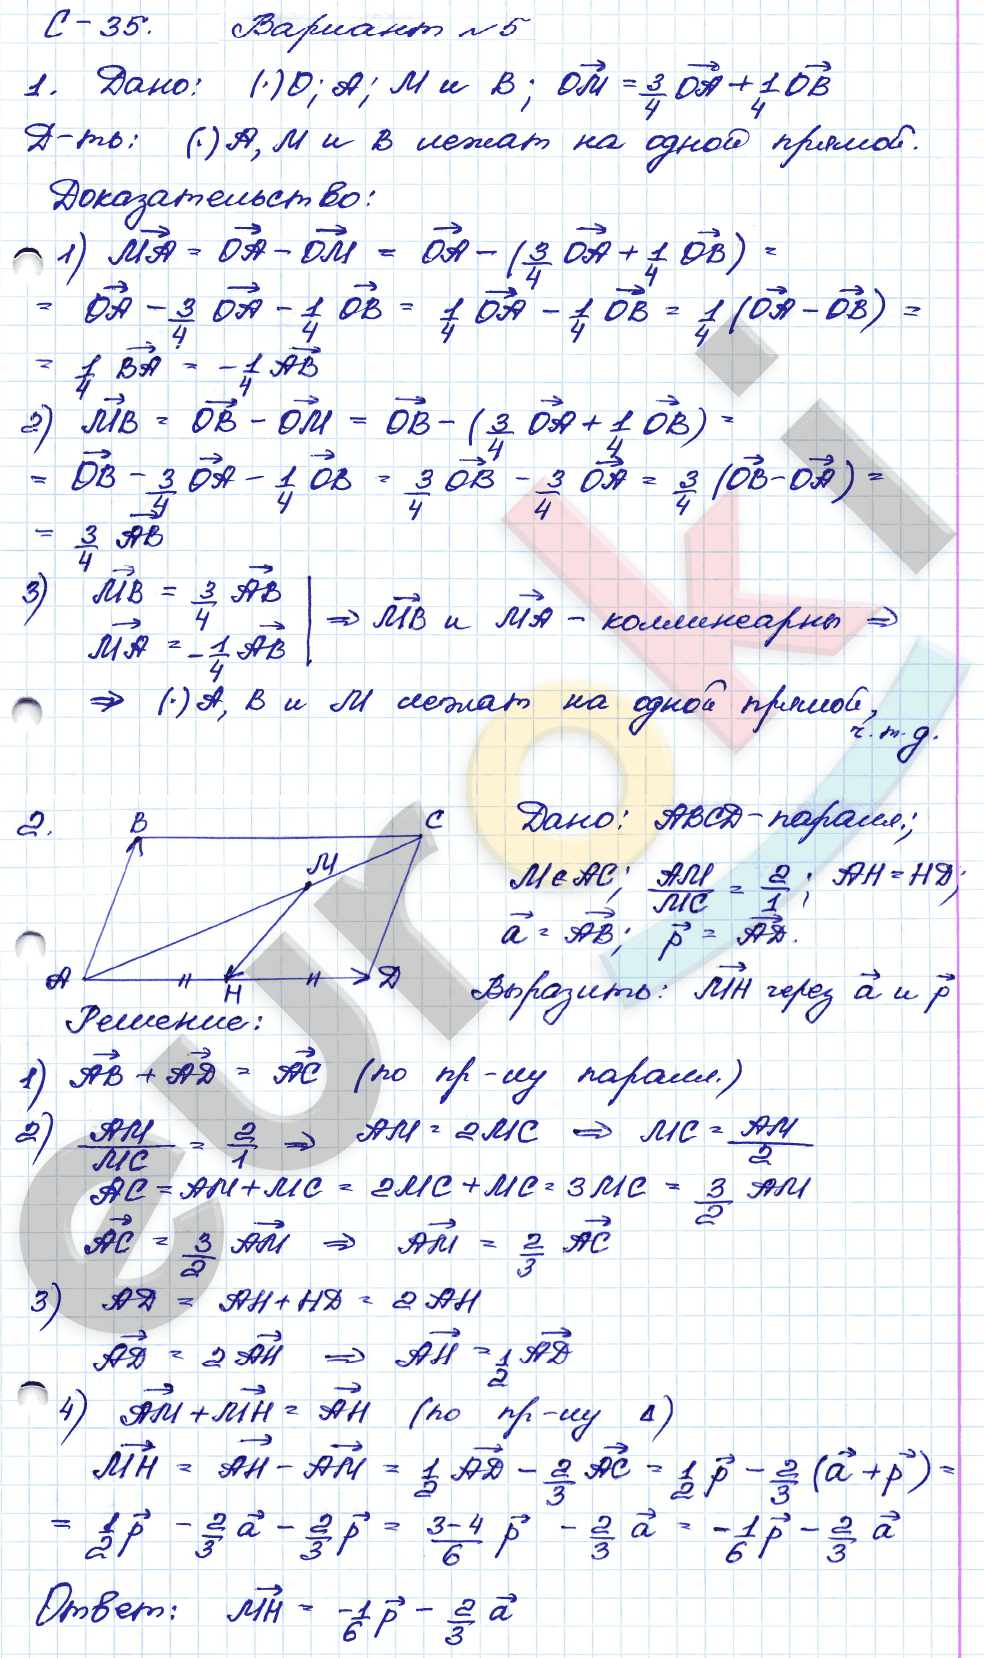 С-35. Вариант №5
1. Дано: (·)O; A; M и B; $\overrightarrow{OM} = \frac{3}{4}\overrightarrow{OA} + \frac{1}{4}\overrightarrow{OB}$
Д-ть: (·) A, M и B лежат на одной прямой.
Доказательство:
1) $\overrightarrow{MA} = \overrightarrow{OA} - \overrightarrow{OM} = \overrightarrow{OA} - (\frac{3}{4}\overrightarrow{OA} + \frac{1}{4}\overrightarrow{OB}) =$
$= \overrightarrow{OA} - \frac{3}{4}\overrightarrow{OA} - \frac{1}{4}\overrightarrow{OB} = \frac{1}{4}\overrightarrow{OA} - \frac{1}{4}\overrightarrow{OB} = \frac{1}{4}(\overrightarrow{OA} - \overrightarrow{OB}) =$
$= \frac{1}{4}\overrightarrow{BA} = -\frac{1}{4}\overrightarrow{AB}$
2) $\overrightarrow{MB} = \overrightarrow{OB} - \overrightarrow{OM} = \overrightarrow{OB} - (\frac{3}{4}\overrightarrow{OA} + \frac{1}{4}\overrightarrow{OB}) =$
$= \overrightarrow{OB} - \frac{3}{4}\overrightarrow{OA} - \frac{1}{4}\overrightarrow{OB} = \frac{3}{4}\overrightarrow{OB} - \frac{3}{4}\overrightarrow{OA} = \frac{3}{4}(\overrightarrow{OB} - \overrightarrow{OA}) =$
$= \frac{3}{4}\overrightarrow{AB}$
3) $\overrightarrow{MB} = \frac{3}{4}\overrightarrow{AB}$
$\overrightarrow{MA} = -\frac{1}{4}\overrightarrow{AB}$ | ⇒ $\overrightarrow{MB}$ и $\overrightarrow{MA}$ - коллинеарны ⇒
⇒ (·) A, B и M лежат на одной прямой,
ч.т.д.
2.
B
C
M
A
H
D
Дано: ABCD - паралл.;
M ∈ AC; $\frac{AM}{MC} = \frac{2}{1}$; AH = HD;
$\vec{a} = \overrightarrow{AB}$; $\vec{p} = \overrightarrow{AD}$.
Выразить: $\overrightarrow{MH}$ через $\vec{a}$ и $\vec{p}$
Решение:
1) $\overrightarrow{AB} + \overrightarrow{AD} = \overrightarrow{AC}$ (по пр-лу паралл.)
2) $\frac{AM}{MC} = \frac{2}{1}$ ⇒ AM = 2MC ⇒ MC = $\frac{AM}{2}$
AC = AM + MC = 2MC + MC = 3MC = $\frac{3}{2}$ AM
$\overrightarrow{AC} = \frac{3}{2}\overrightarrow{AM}$ ⇒ $\overrightarrow{AM} = \frac{2}{3}\overrightarrow{AC}$
3) AD = AH + HD = 2AH
$\overrightarrow{AD} = 2\overrightarrow{AH}$ ⇒ $\overrightarrow{AH} = \frac{1}{2}\overrightarrow{AD}$
4) $\overrightarrow{AM} + \overrightarrow{MH} = \overrightarrow{AH}$ (по пр-лу Δ)
$\overrightarrow{MH} = \overrightarrow{AH} - \overrightarrow{AM} = \frac{1}{2}\overrightarrow{AD} - \frac{2}{3}\overrightarrow{AC} = \frac{1}{2}\vec{p} - \frac{2}{3}(\vec{a} + \vec{p}) =$
$= \frac{1}{2}\vec{p} - \frac{2}{3}\vec{a} - \frac{2}{3}\vec{p} = \frac{3-4}{6}\vec{p} - \frac{2}{3}\vec{a} = -\frac{1}{6}\vec{p} - \frac{2}{3}\vec{a}$
Ответ: $\overrightarrow{MH} = -\frac{1}{6}\vec{p} - \frac{2}{3}\vec{a}$
euroki